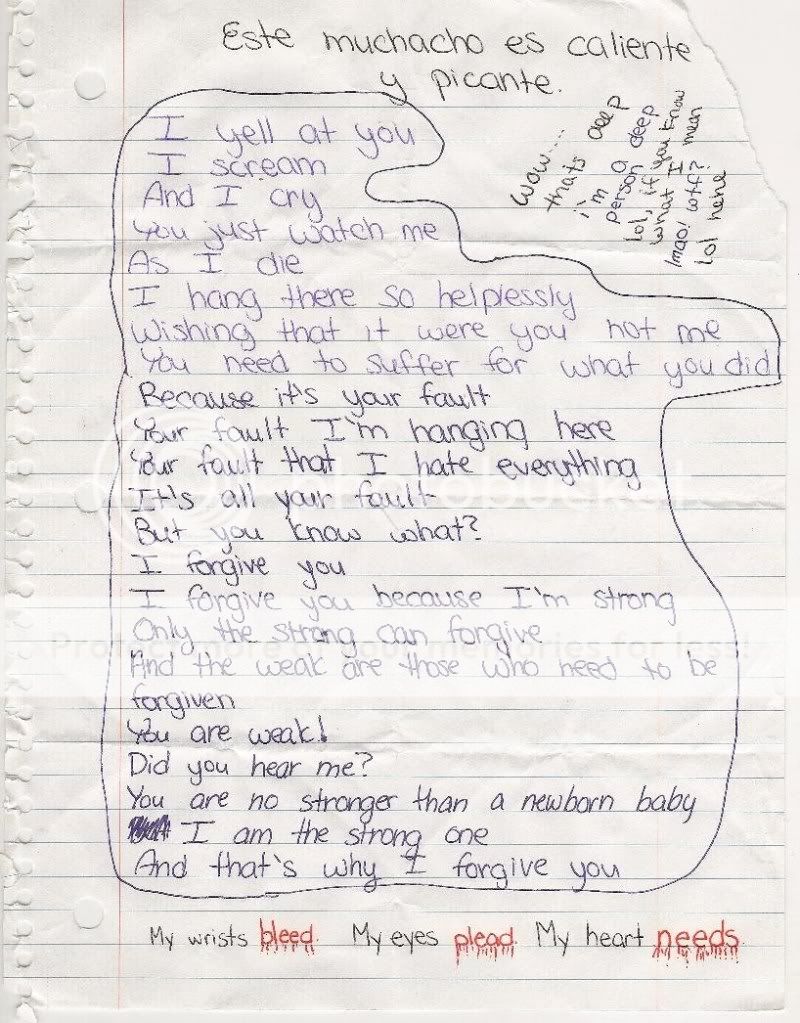 Este muchacho es caliente
y picante.
wow....
thats deep
i'm a
person deep
lol, if you know
what I mean
lmao! wtf?
lol hehe
I yell at you
I scream
And I cry
You just watch me
As I die
I hang there so helplessly
Wishing that it were you not me
You need to suffer for what you did
Because it's your fault
Your fault I'm hanging here
Your fault that I hate everything
It's all your fault
But you know what?
I forgive you
I forgive you because I'm strong
Only the strong can forgive
And the weak are those who need to be
forgiven
You are weak!
Did you hear me?
You are no stronger than a newborn baby
I am the strong one
And that's why I forgive you
My wrists bleed. My eyes plead. My heart needs.
photobucket
Protect more of your memories for less!